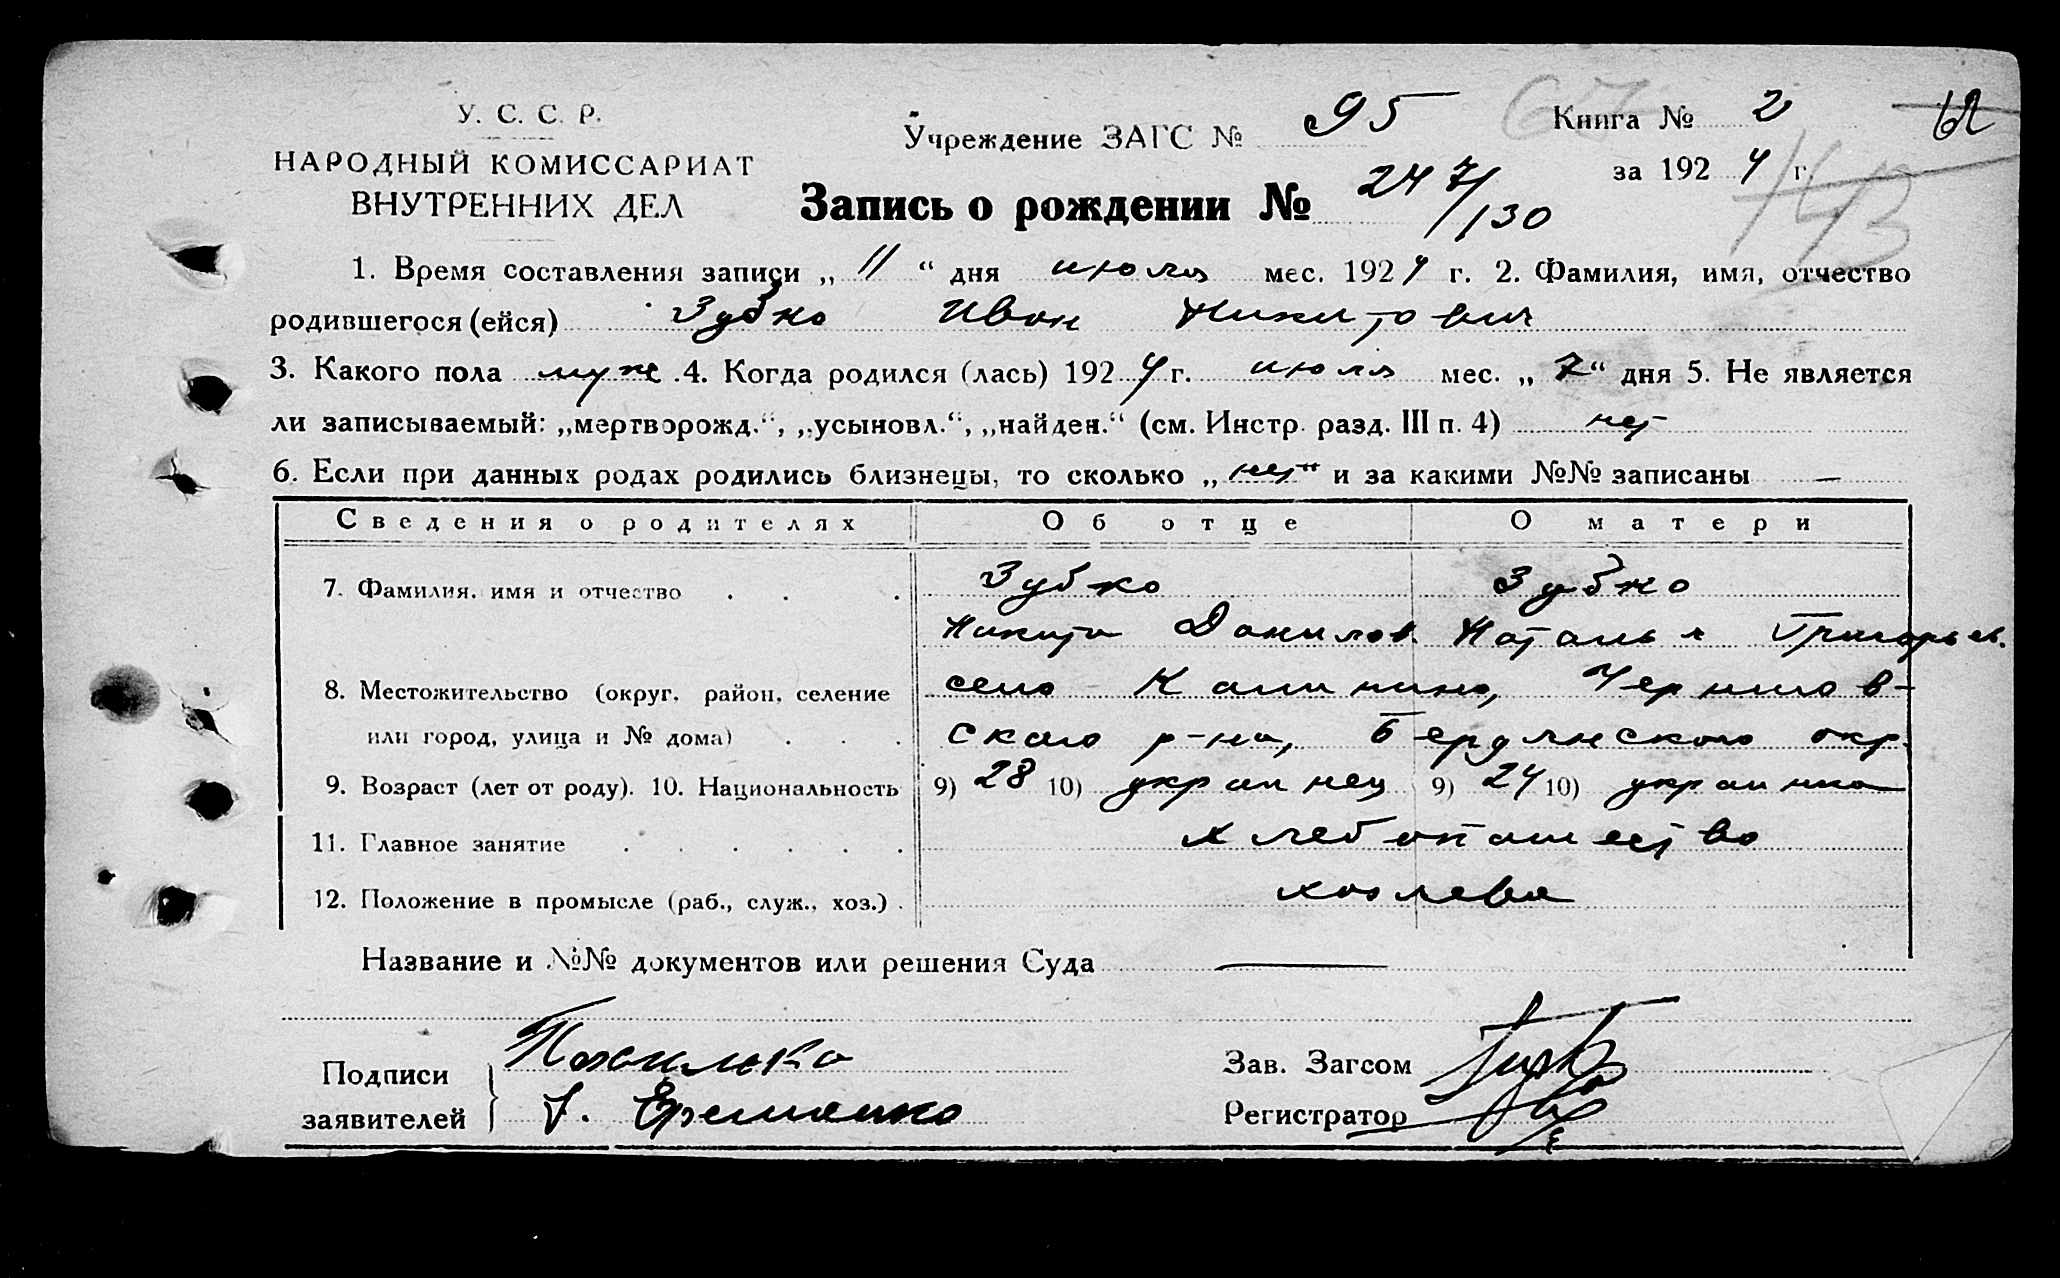 У. С. С. Р.
НАРОДНЫЙ КОМИССАРИАТ
ВНУТРЕННИХ ДЕЛ
Учреждение ЗАГС № 95
67
Книга № 2
62
за 1924 г.
143
Запись о рождении № 247/130
1. Время составления записи „ 11 “ дня июля мес. 1924 г. 2. Фамилия, имя, отчество
родившегося (ейся) Зубко Иван Никитович
3. Какого пола муж. 4. Когда родился (лась) 1924 г. июля мес. „ 7 “ дня 5. Не является
ли записываемый: „мертворожд.“, „усыновл.“, „найден.“ (см. Инстр. разд. III п. 4) нет
6. Если при данных родах родились близнецы, то сколько „ нет “ и за какими №№ записаны —
Сведения о родителях Об отце О матери
7. Фамилия, имя и отчество . . . Зубко Зубко
Никита Данилов. Наталья Григорьев.
8. Местожительство (округ, район, селение село Калинино, Чернигов-
или город, улица и № дома) . . . ского р-на, Бердянского окр.
9. Возраст (лет от роду). 10. Национальность 9) 28 10) украинец 9) 24 10) украинка
11. Главное занятие . . . . . . хлебопашество
12. Положение в промысле (раб., служ., хоз.) . хозяева
Название и №№ документов или решения Суда —
Подписи
заявителей
А. Еременко
Зав. Загсом
Регистратор